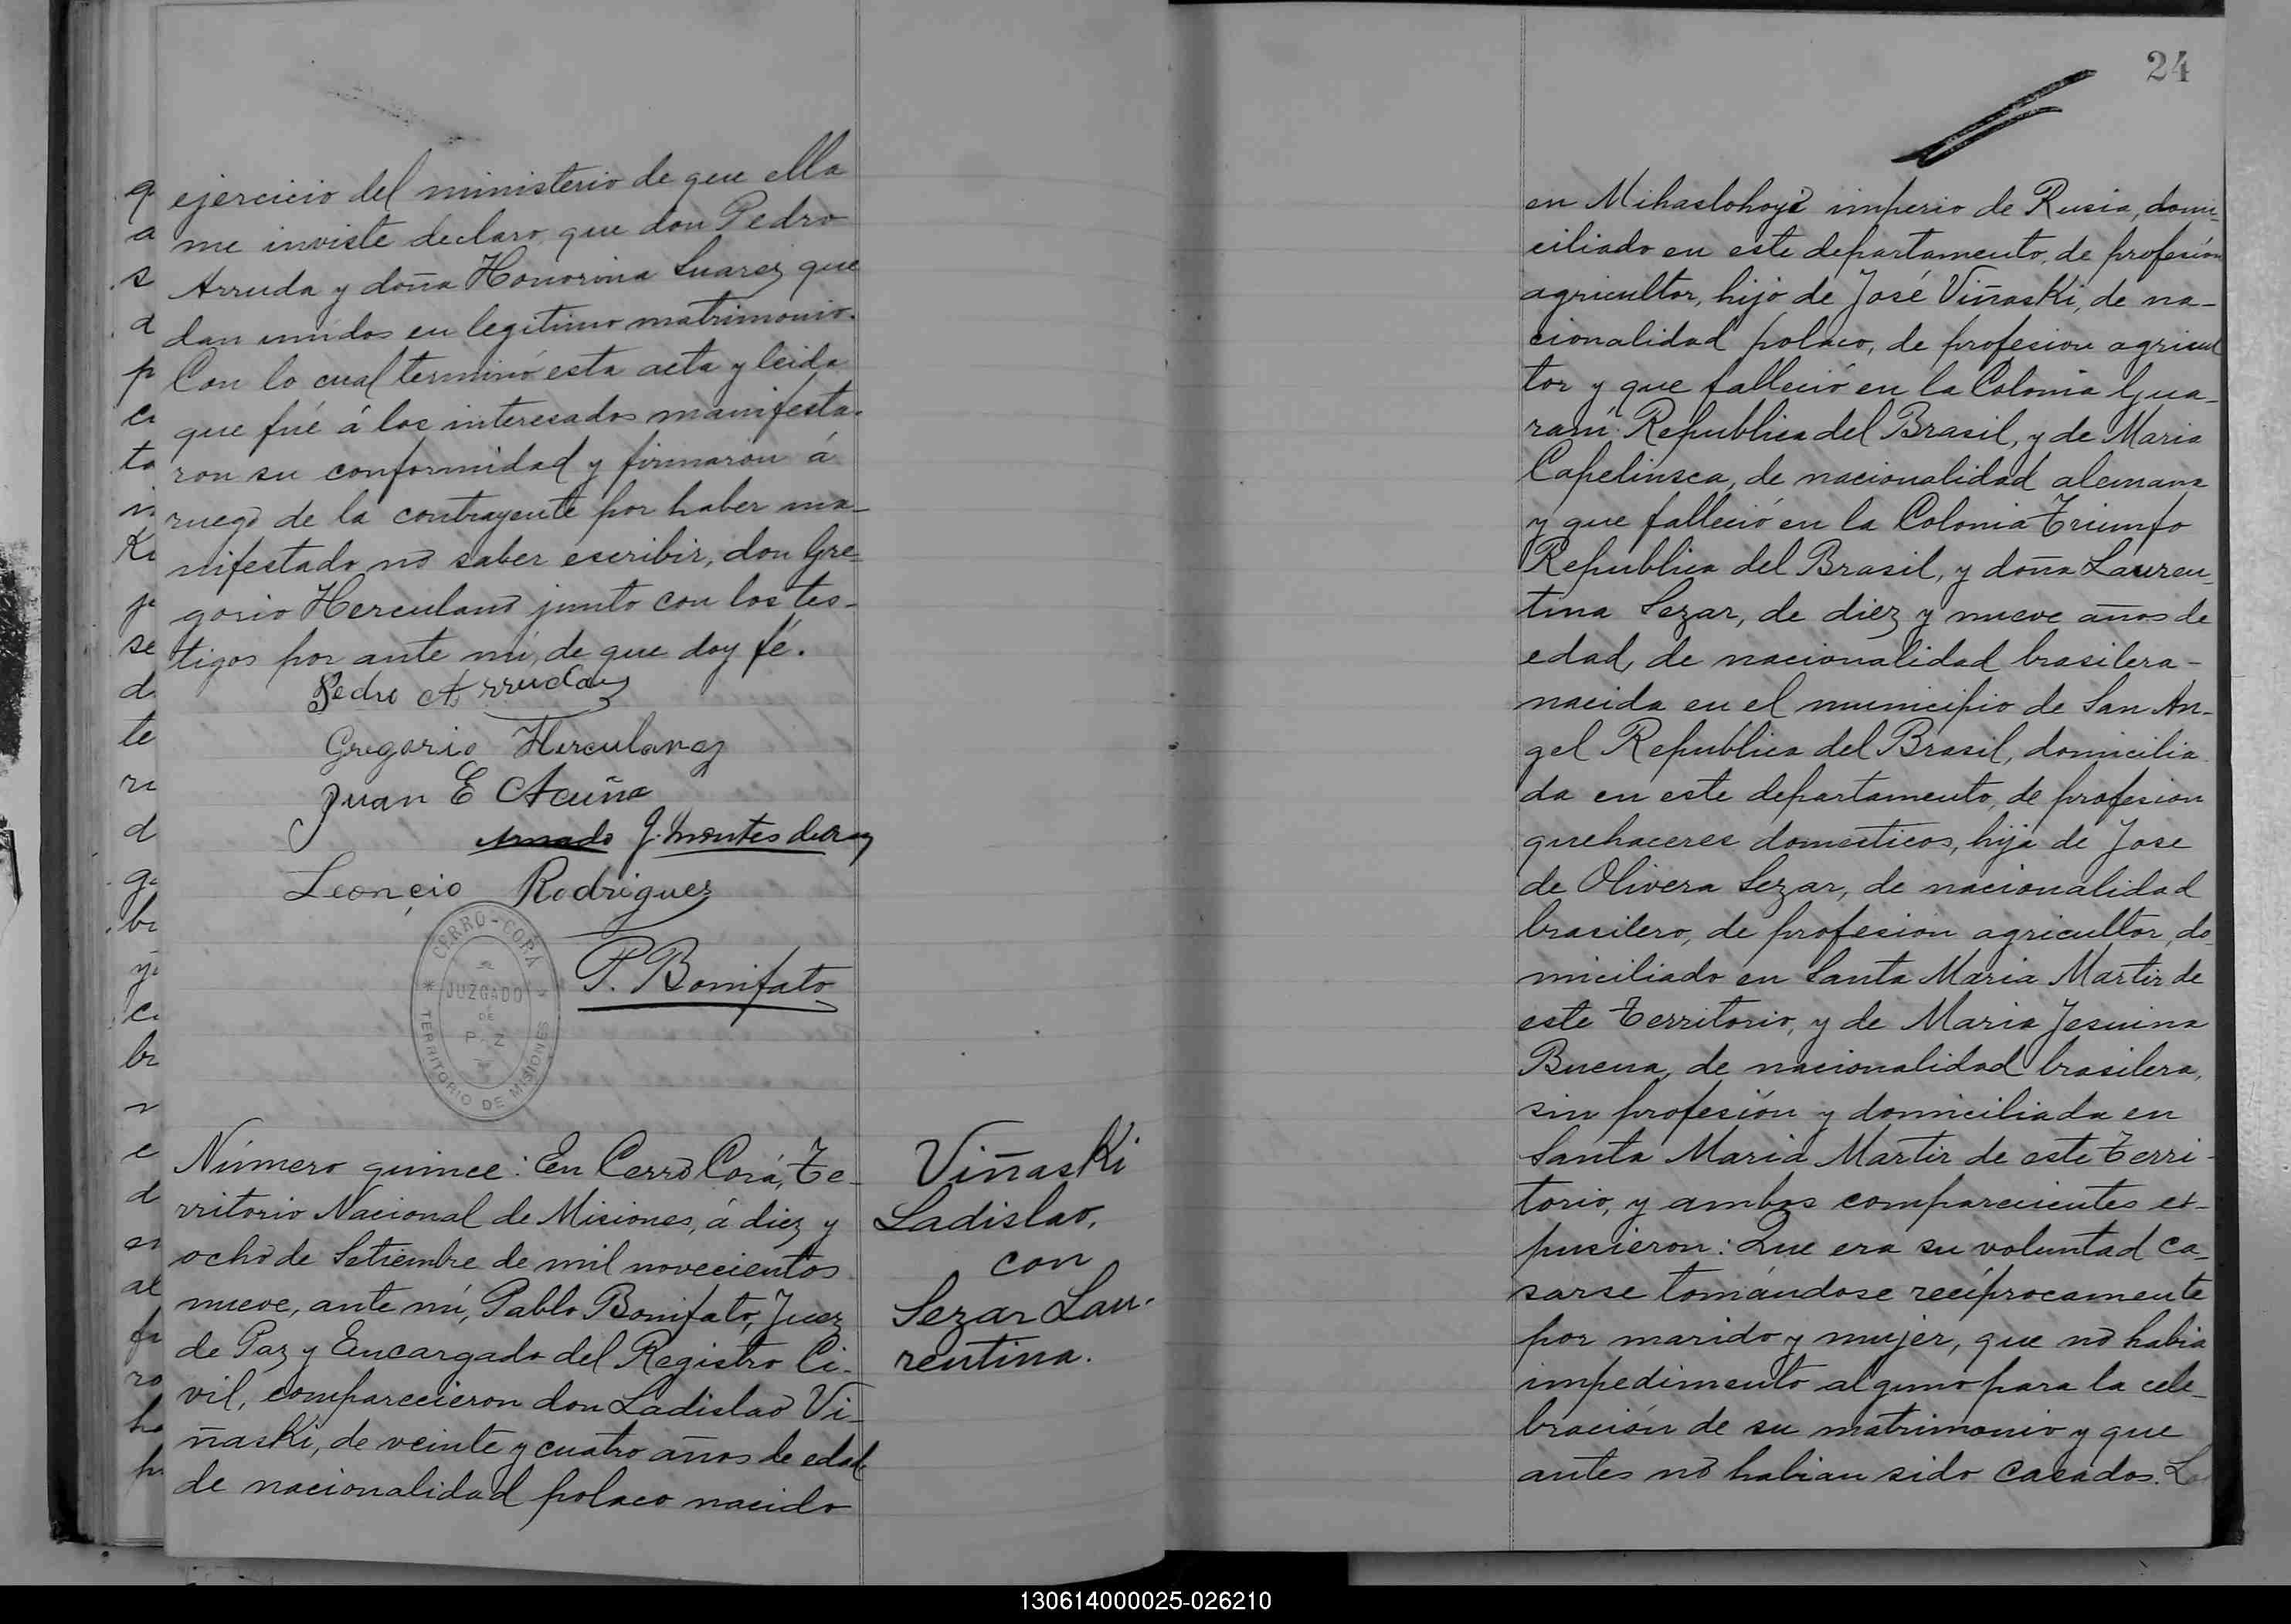 ejercicio del ministerio de que ella
me inviste declaro que don Pedro
Arruda y doña Honorina Suarez que
dan unidos en legitimo matrimonio.
Con lo cual terminó esta acta y leida
que fué á los interesados manifesta-
ron su conformidad y firmaron á
ruego de la contrayente por haber ma-
nifestado no saber escribir, don Gre-
gorio Herculano junto con los tes-
tigos por ante mí, de que doy fé.
Pedro Arruda
Gregorio Herculano
Juan E Acuña
Amado J. Montes de Oca
Leoncio Rodriguez
P. Bonifato
CERRO-CORÁ
JUZGADO
DE
P Z
TERRITORIO DE MISIONES
Número quince: En Cerro Corá, Te-
rritorio Nacional de Misiones, á diez y
ocho de Setiembre de mil novecientos
nueve, ante mí, Pablo Bonifato, Juez
de Paz y Encargado del Registro Ci-
vil, comparecieron don Ladislao Vi-
ñaski, de veinte y cuatro años de edad
de nacionalidad polaco nacido
Viñaski
Ladislao,
con
Sezar Lau-
rentina.
24
en imperio de Rusia, domi-
ciliado en este departamento, de profesión
agricultor, hijo de José Viñaski, de na-
cionalidad polaco, de profesion agricul
tor y que falleció en la Colonia Gua-
raní Republica del Brasil, y de Maria
Capelinsca, de nacionalidad alemana
y que falleció en la Colonia Triumfo
Republica del Brasil, y doña Lauren-
tina Sezar, de diez y nueve años de
edad, de nacionalidad brasilera-
nacida en el municipio de San An-
gel Republica del Brasil, domicilia
da en este departamento, de profesion
quehaceres domesticos, hija de Jose
de Olivera Sezar, de nacionalidad
brasilero, de profesion agricultor, do-
miciliado en Santa Maria Martir de
este Territorio, y de Maria Jesuina
Buena, de nacionalidad brasilera,
sin profesión y domiciliada en
Santa Maria Martir de este Terri-
torio, y ambos comparecientes ex-
pusieron: Que era su voluntad ca-
sarse tomándose recíprocamente
por marido y mujer, que no habia
impedimento alguno para la cele-
bración de su matrimonio y que
antes no habian sido casados.
130614000025-026210